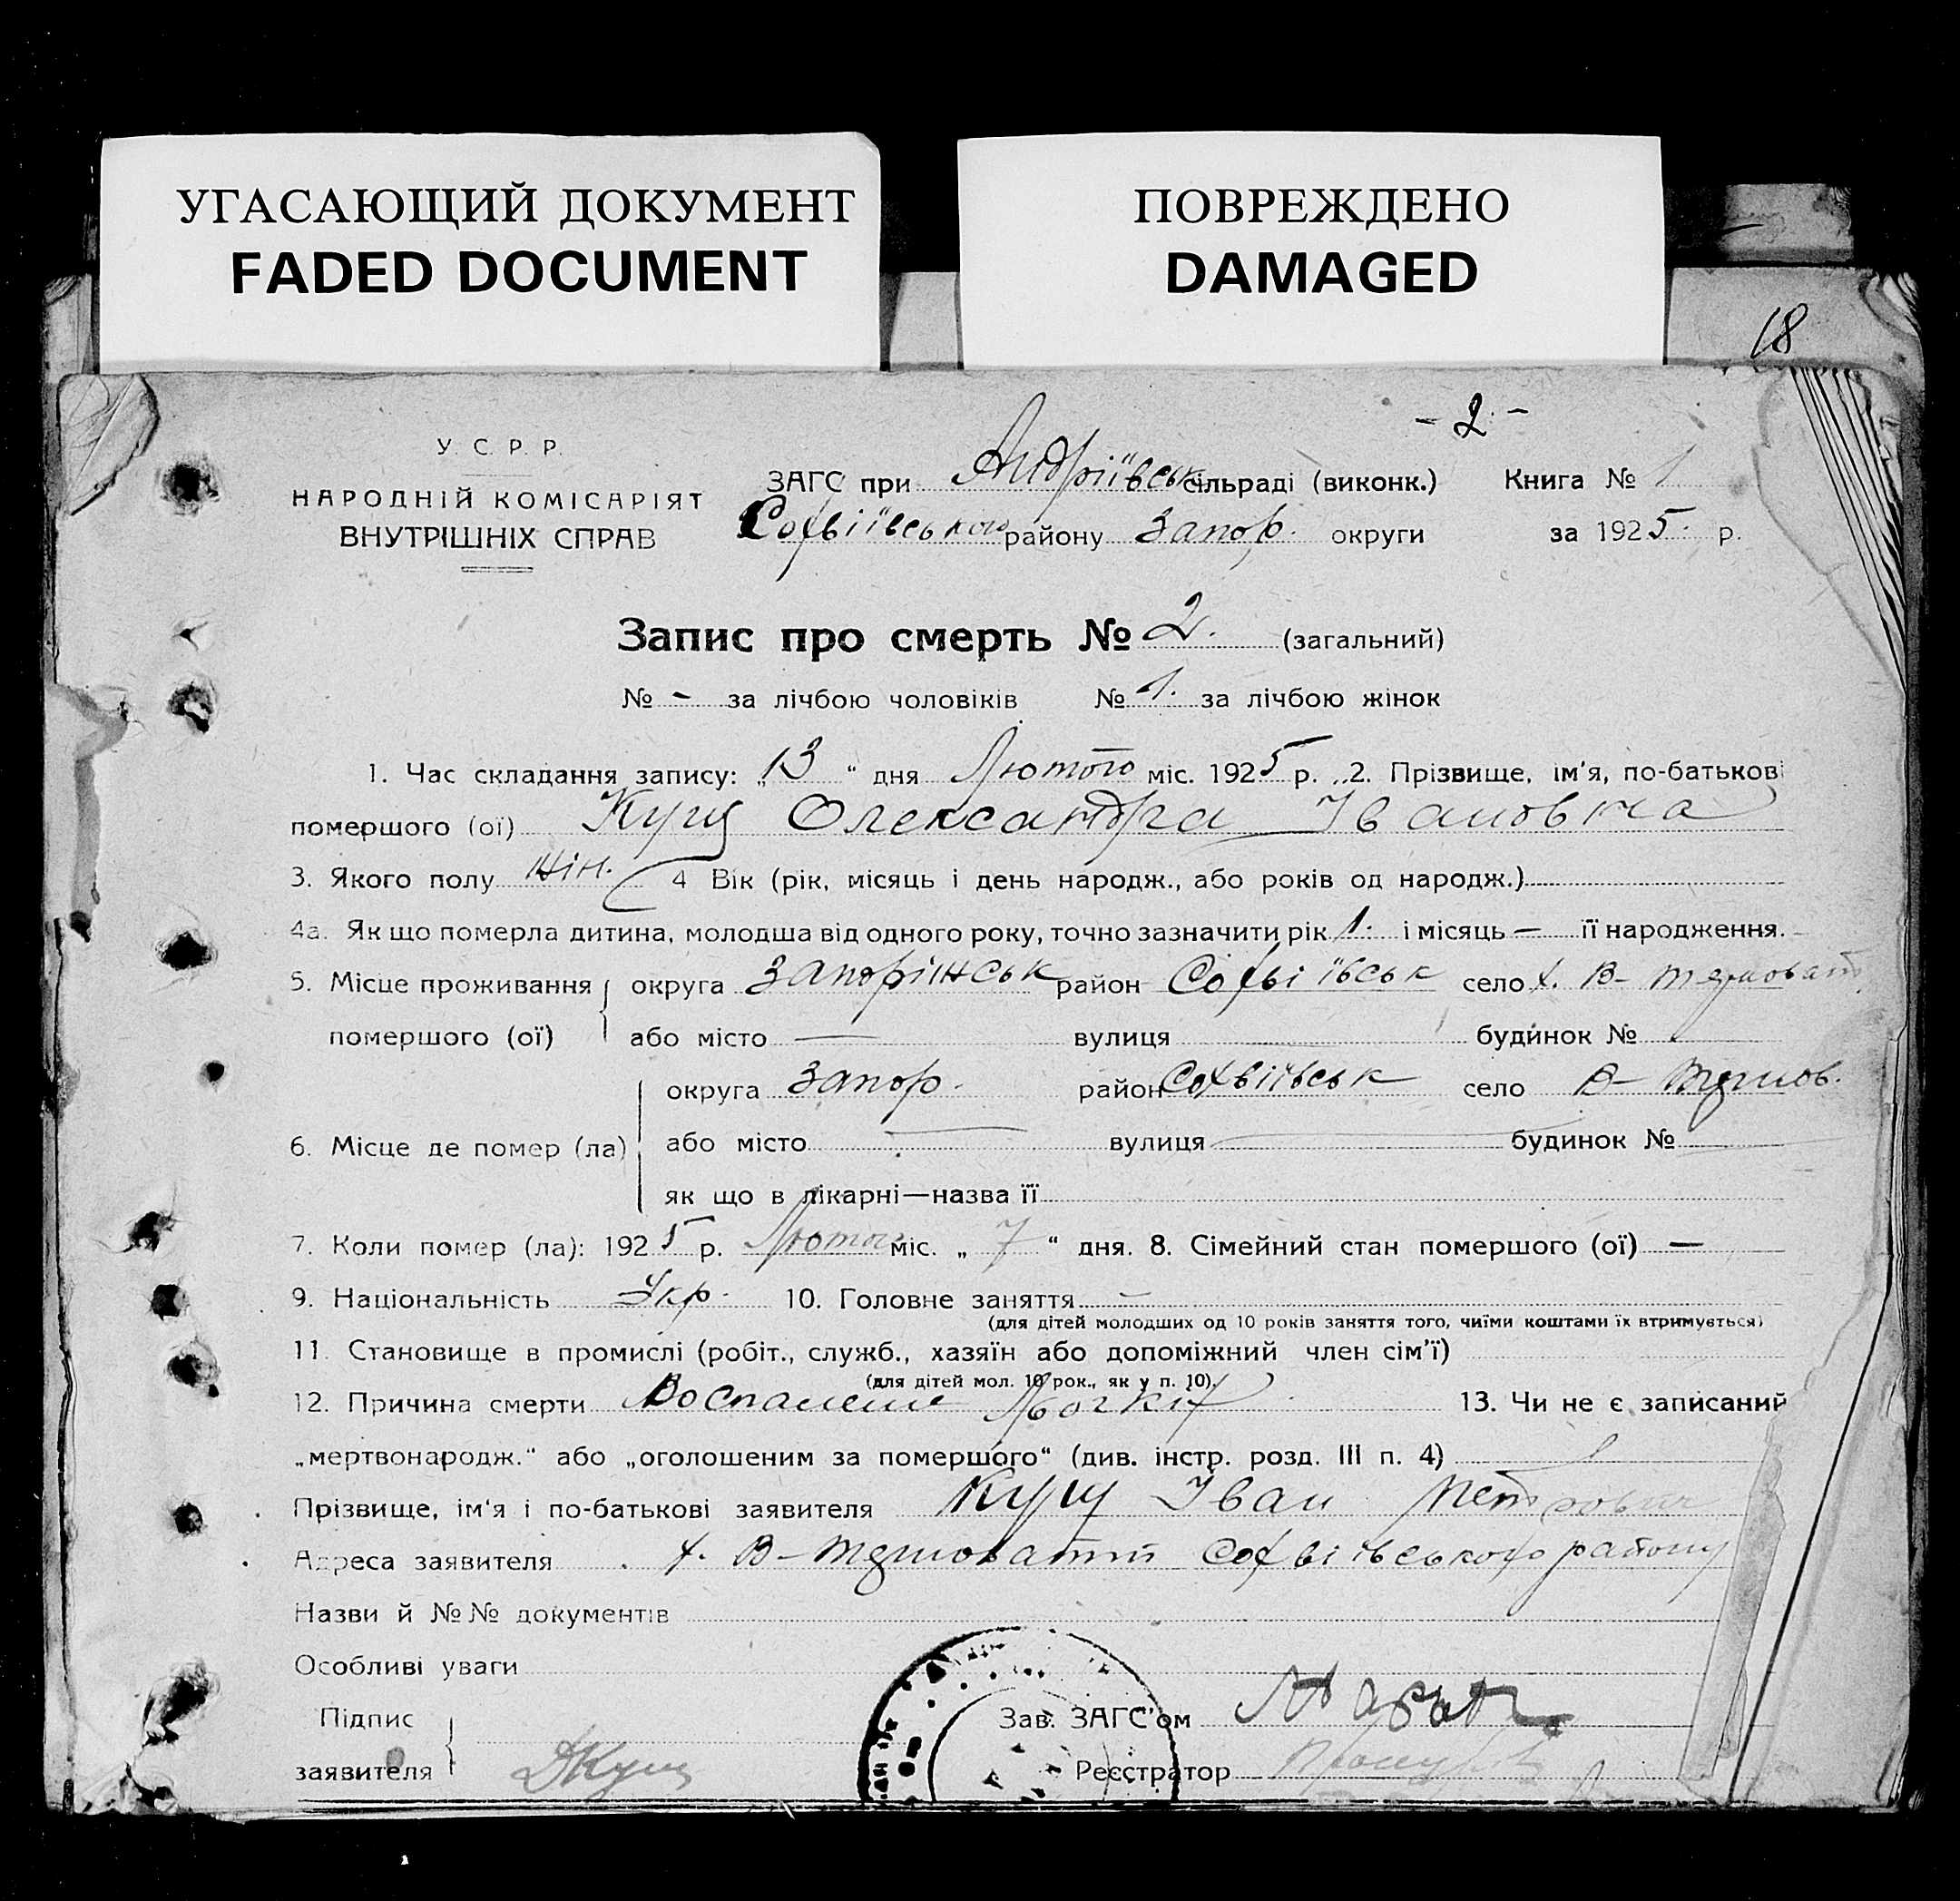 УГАСАЮЩИЙ ДОКУМЕНТ
FADED DOCUMENT
ПОВРЕЖДЕНО
DAMAGED
18
- 2 -
У. С. Р. Р.
НАРОДНІЙ КОМІСАРІЯТ
ВНУТРІШНІХ СПРАВ
ЗАГС при Андріївськ сільраді (виконк.) Книга № 1
Софіївського району Запор. округи за 1925 р.
Запис про смерть № 2. (загальний)
№ - за лічбою чоловіків № 1. за лічбою жінок
1. Час складання запису: „13“ дня Лютого міс. 1925 р. 2. Прізвище, ім'я, по-батькові
помершого (ої) Кущ Олександра Івановна
3. Якого полу жін. 4 Вік (рік, місяць і день народж., або років од народж.)
4а. Як що померла дитина, молодша від одного року, точно зазначити рік 1. і місяць — її народження.
5. Місце проживання помершого (ої) округа Запоріжськ район Софвіївськ село х. В-
або місто — вулиця будинок №
6. Місце де помер (ла) округа Запор. район Софвіївськ село В-
або місто — вулиця — будинок №
як що в лікарні—назва її
7. Коли помер (ла): 1925 р. Лютого міс. „7“ дня. 8. Сімейний стан помершого (ої) —
9. Національність Укр. 10. Головне заняття -
(для дітей молодших од 10 років заняття того, чиїми коштами їх втримується)
11. Становище в промислі (робіт., служб., хазяїн або допоміжний член сім'ї)
(для дітей мол. 10 рок., як у п. 10).
12. Причина смерти Воспаление 13. Чи не є записаний
„мертвонародж.“ або „оголошеним за помершого“ (див. інстр. розд. III п. 4)
Прізвище, ім'я і по-батькові заявителя Кущ Іван Петрович
Адреса заявителя х. В- Софвіївського району
Назви й №№ документів
Особливі уваги
Підпис заявителя Кущ
Зав. ЗАГС'ом
Реєстратор